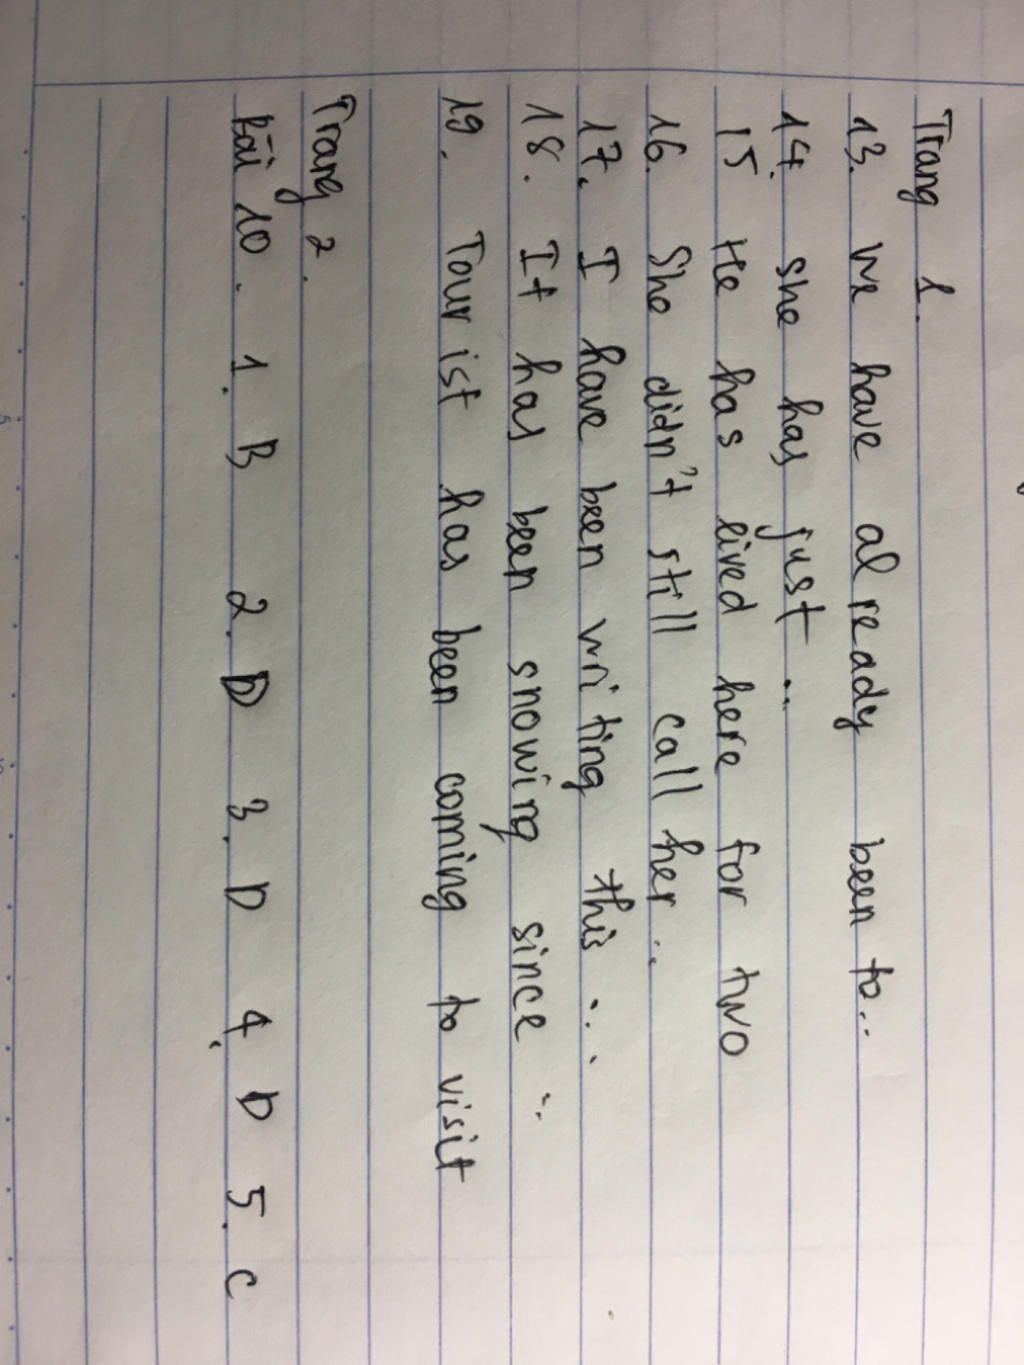 Trang 1.
13. We have already been to..
14. she has just ..
15 He has lived here for two
16. She didn't still call her..
17. I have been writing this ...
18. It has been snowing since ..
19. Tourist has been coming to visit
Trang 2.
Bài 10. 1. B 2. D 3. D 4. D 5. C